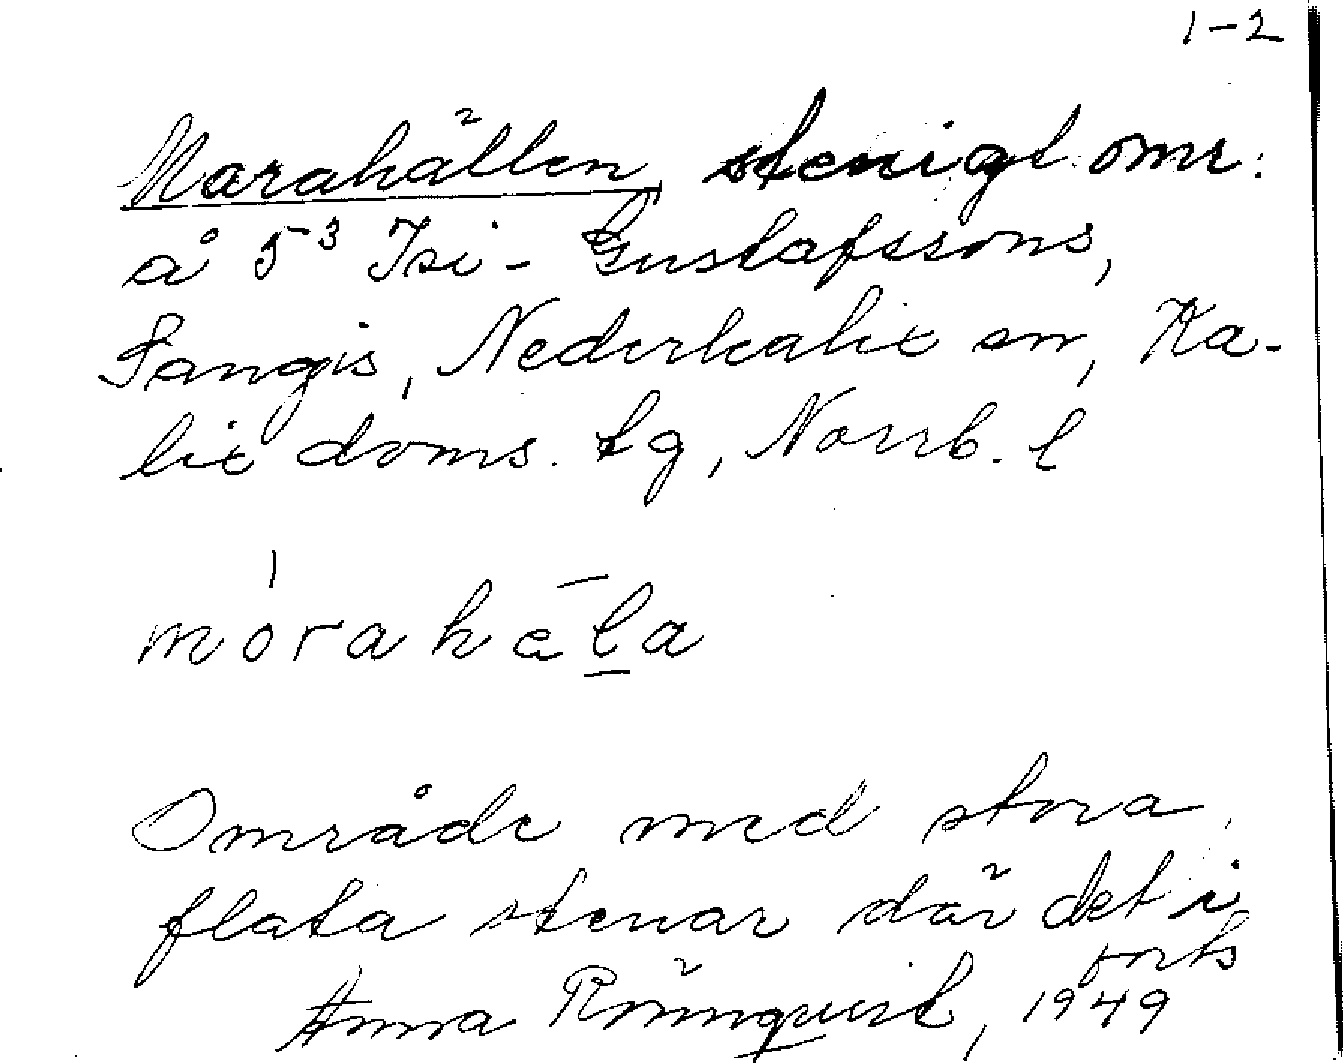 1-2
Marahällen, stenigt omr.
å 5³ Isi-Gustafssons,
Sangis, Nederkalix sn, Ka-
lix doms. tg, Norrb. l
mórahāl̲a
Område med stora,
flata stenar där det i
forts
Anna Rönnqvist, 1949